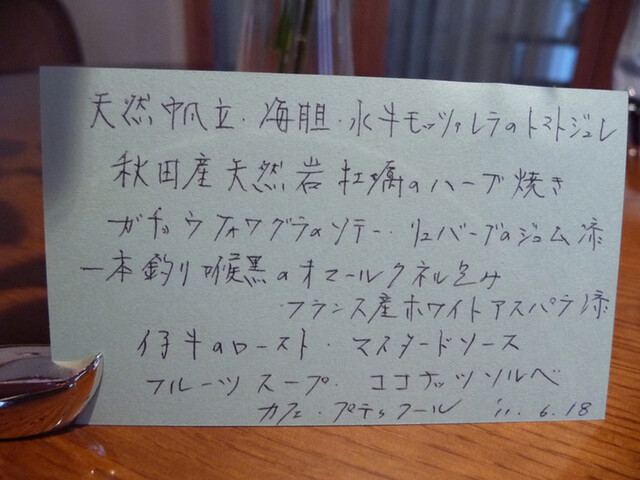 天然帆立・海胆・水牛モッツァレラのトマトジュレ
秋田産天然岩牡蠣のハーブ焼き
ガチョウフォワグラのソテー・リュバーブのジャム添
一本釣り喉黒のオマールクネル包み
・フランス産ホワイトアスパラ添
仔牛のロースト・マスタードソース
フルーツスープ・ココナッツソルベ
カフェ・プティフール '11.6.18